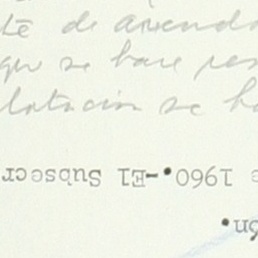 te de arrenda
que se hace
lotacion se ha
ón.
e 1960.-El Subsecr